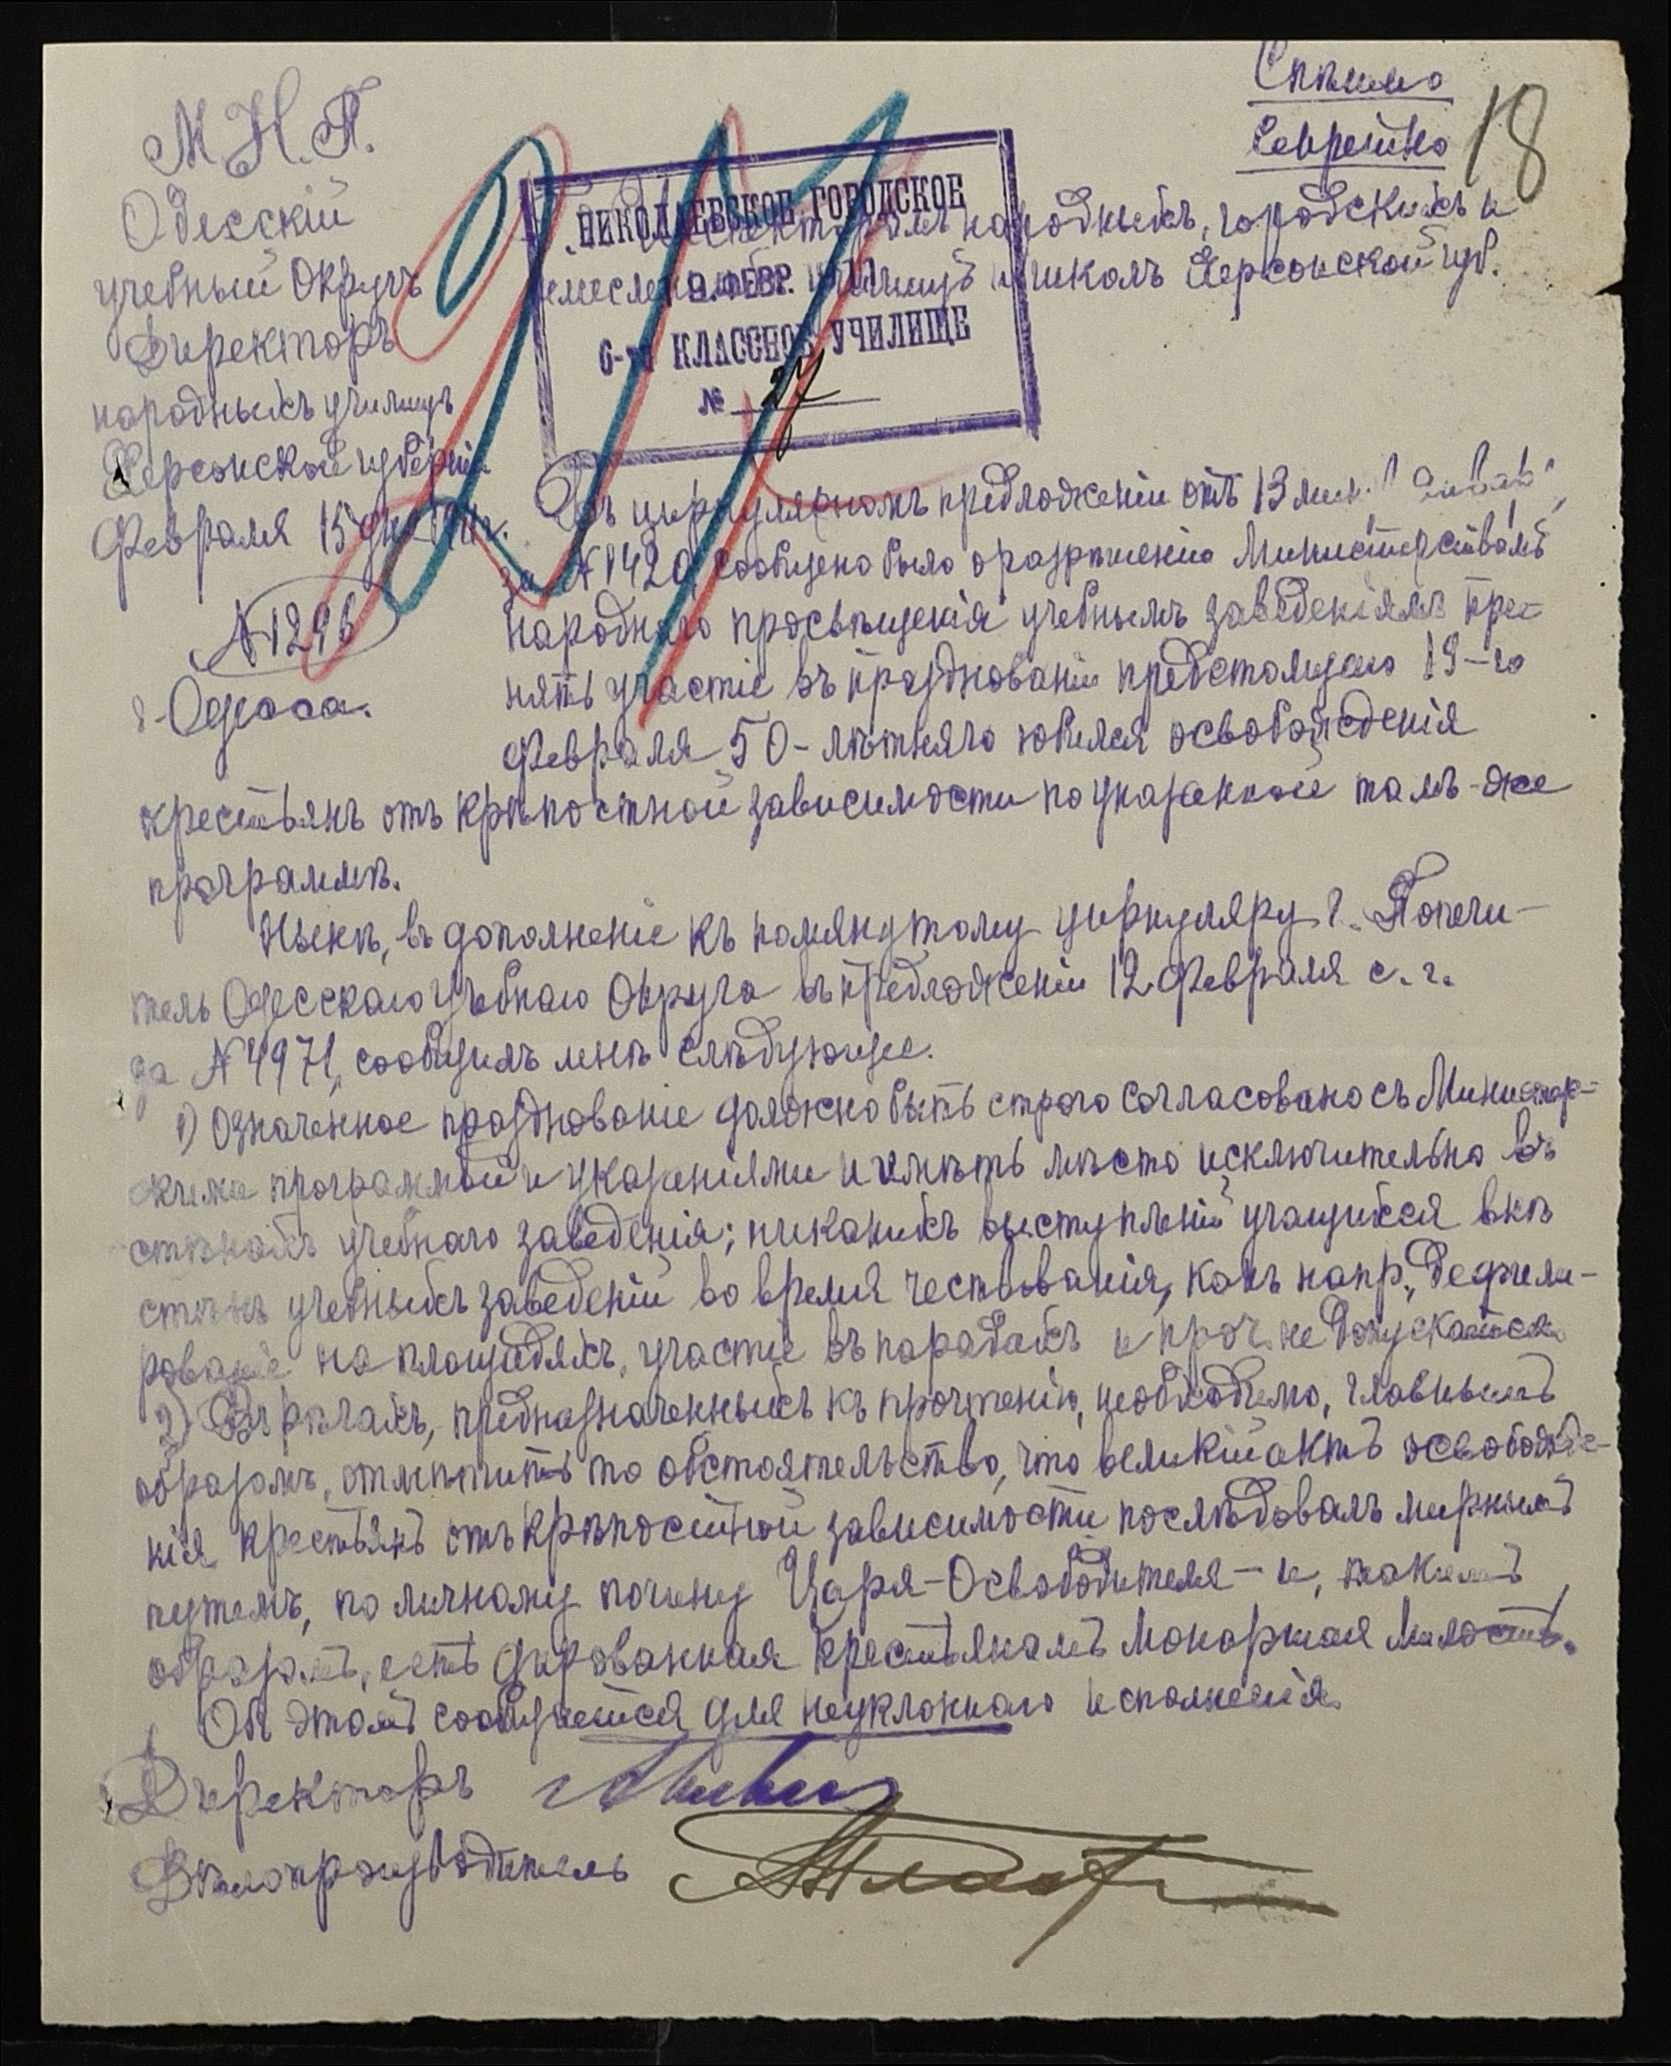 Спѣшно
Секретно
18
М. Н. П.
Одесскій
учебный Округъ
Директоръ
народныхъ училищъ
Херсонской губерніи
Февраля 15 дня 1911 г.
№ 1296
г. Одесса.
НИКОЛАЕВСКОЕ ГОРОДСКОЕ
19. ФЕВР. 1911
6-ти КЛАССНОЕ УЧИЛИЩЕ
№
народныхъ, городскихъ и
училищъ и школъ Херсонской губ.
Въ циркулярномъ предложеніи отъ 13 мин. Января
за № 1420, сообщено было о разрѣшеніи Министерствомъ
народнаго просвѣщенія учебнымъ заведеніямъ при-
нять участіе въ празднованіи предстоящаго 19-го
Февраля 50-лѣтняго юбилея освобожденія
крестьянъ отъ крѣпостной зависимости по указанной тамъ-же
программѣ.
Нынѣ, въ дополненіе къ помянутому циркуляру г. Попечи-
тель Одесскаго учебнаго Округа въ предложеніи 12 Февраля с. г.
за № 4971, сообщилъ мнѣ слѣдующее.
1) Означенное празднованіе должно быть строго согласовано съ Министер-
скими программой и указаніями и имѣть мѣсто исключительно въ
стѣнахъ учебнаго заведенія; никакихъ выступленій учащихся внѣ
стѣнъ учебныхъ заведеній во время чествованія, какъ напр., дефили-
рованіе на площадяхъ, участіе въ парадахъ и проч. не допускается.
2) Въ рѣчахъ, предназначенныхъ къ прочтенію, необходимо, главнымъ
образомъ, отмѣтить то обстоятельство, что великій актъ освобожде-
нія крестьянъ отъ крѣпостной зависимости послѣдовалъ мирнымъ
путемъ, по личному почину Царя-Освободителя - и, такимъ
образомъ, есть дарованная крестьянамъ Монаршая Милость.
Объ этомъ сообщается для неуклоннаго исполненія.
Директоръ
Дѣлопроизводитель